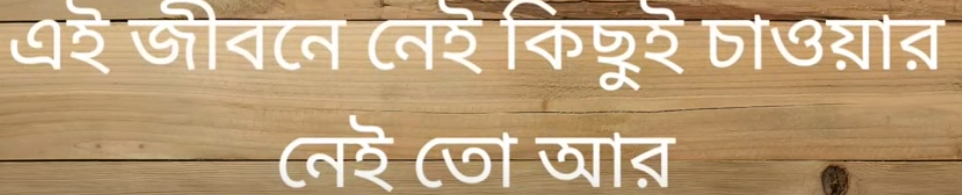 এই জীবনে নেই কিছুই চাওয়ার
নেই তো আর